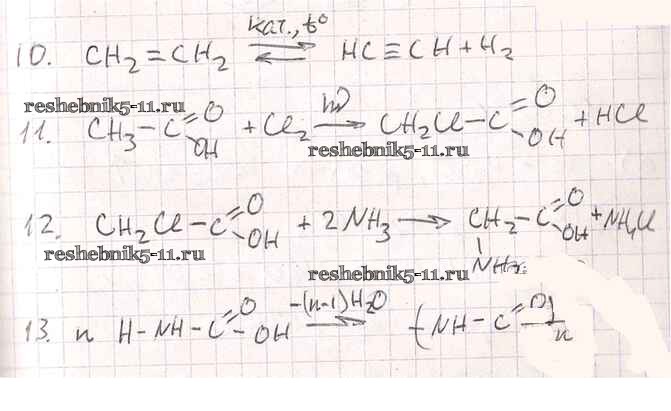 10. CH₂=CH₂ ⇄ (кат., t°) HC≡CH + H₂
reshebnik5-11.ru
11. CH₃–C(=O)OH + Cl₂ →(hν) CH₂Cl–C(=O)OH + HCl
reshebnik5-11.ru
12. CH₂Cl–C(=O)OH + 2NH₃ → CH₂(NH₂)–C(=O)OH + NH₄Cl
reshebnik5-11.ru
reshebnik5-11.ru
13. n H–NH–C(=O)OH ⇄ (–(n-1)H₂O) (NH–C(=O))n